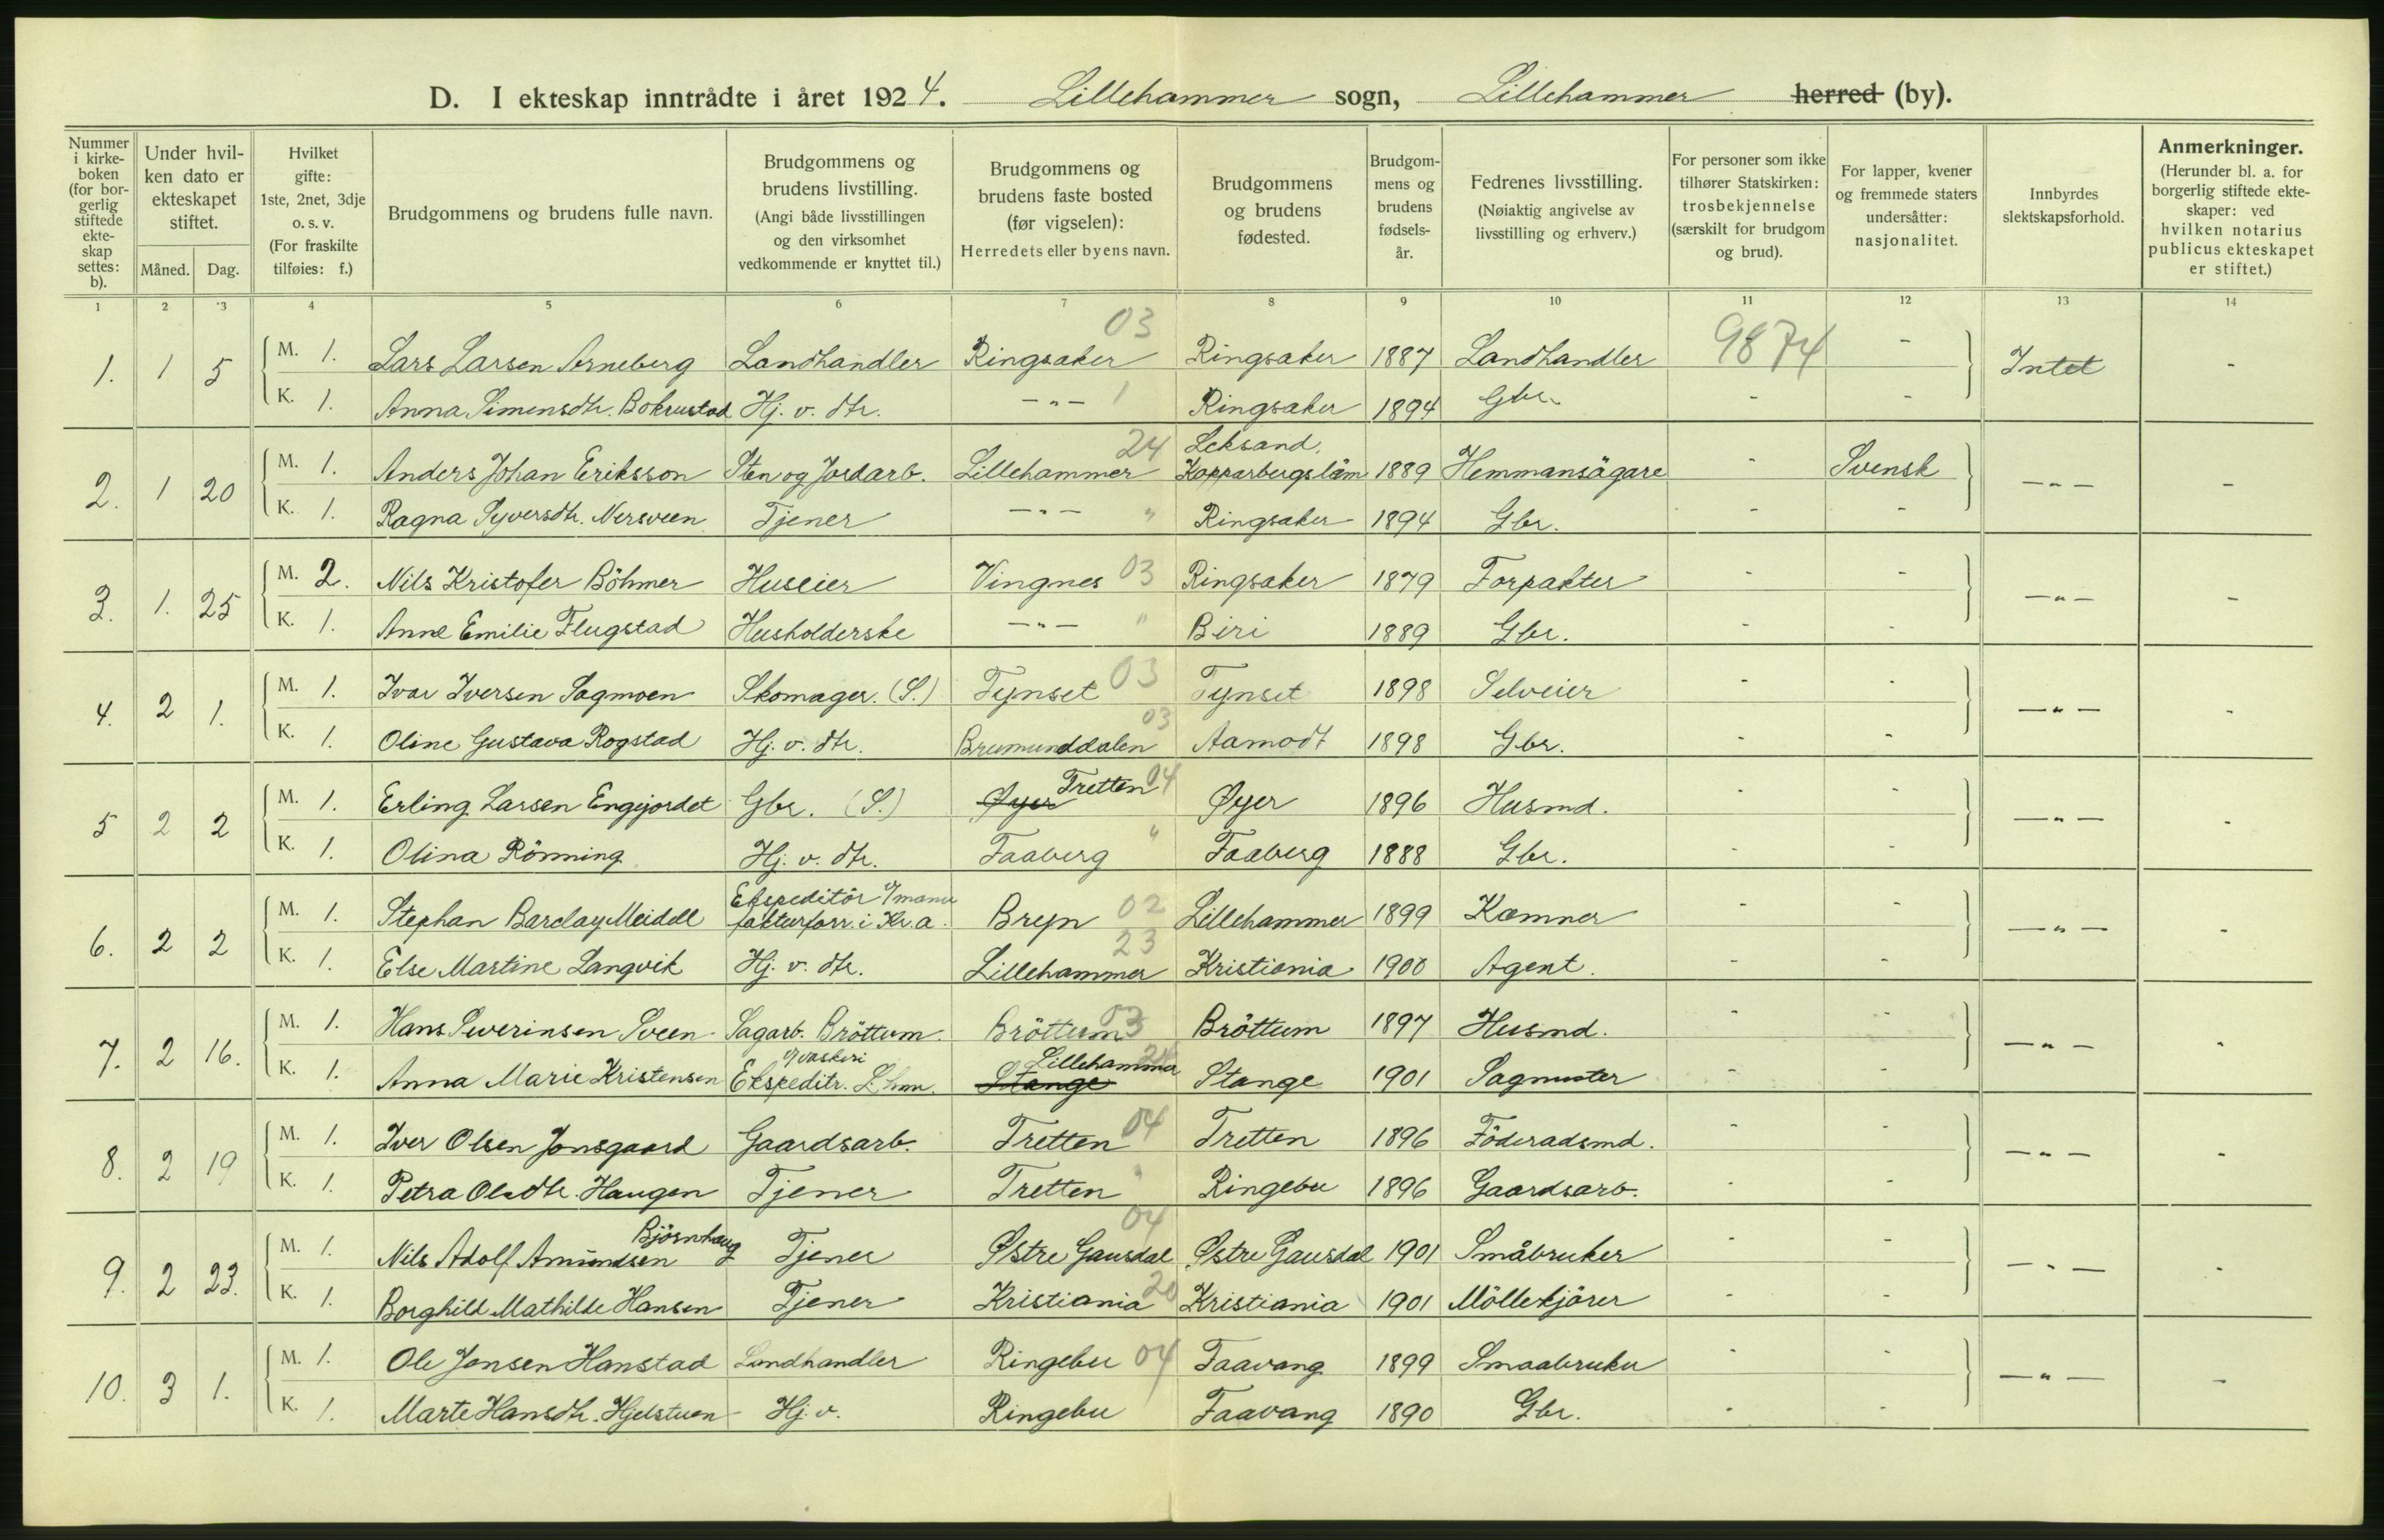 D. I ekteskap inntrådte i året 1924. Lillehammer sogn, Lillehammer herred (by).
Nummer i kirkeboken (for borgerlig stiftede ekteskap settes: b).
Under hvilken dato er ekteskapet stiftet.
Måned. Dag.
Hvilket gifte: 1ste, 2net, 3dje o. s. v. (For fraskilte tilføies: f.)
Brudgommens og brudens fulle navn.
Brudgommens og brudens livstilling. (Angi både livsstillingen og den virksomhet vedkommende er knyttet til.)
Brudgommens og brudens faste bosted (før vigselen): Herredets eller byens navn.
Brudgommens og brudens fødested.
Brudgommens og brudens fødselsår.
Fedrenes livsstilling. (Nøiaktig angivelse av livsstilling og erhverv.)
For personer som ikke tilhører Statskirken: trosbekjennelse (særskilt for brudgom og brud).
For lapper, kvener og fremmede staters undersåtter: nasjonalitet.
Innbyrdes slektskapsforhold.
Anmerkninger. (Herunder bl. a. for borgerlig stiftede ekteskaper: ved hvilken notarius publicus ekteskapet er stiftet.)
1 2 3 4 5 6 7 8 9 10 11 12 13 14
1. 1 5 M. 1. Lars Larsen Arneberg Landhandler Ringsaker 03 Ringsaker 1887 Landhandler 9874 - Intet -
K. 1. Anna Simensdtr. Bokrustad Hj. v. dtr. -"- 1 Ringsaker 1894 Gbr. - -
2. 1 20 M. 1. Anders Johan Eriksson Sten og Jordarb. Lillehammer 24 Leksand, Kopparbergslän 1889 Hemmansägare - Svensk -"- -
K. 1. Ragna Syversdtr. Nersveen Tjener -"- " Ringsaker 1894 Gbr. - -
3. 1. 25 M. 2. Nils Kristofer Böhmer Huseier Vingnes 03 Ringsaker 1879 Forpakter - - -"- -
K. 1. Anne Emilie Flugstad Husholderske -"- " Biri 1889 Gbr. - -
4. 2 1. M. 1. Ivar Iversen Sagmoen Skomager. (S.) Tynset 03 Tynset 1898 Selveier - - -"- -
K. 1. Oline Gustava Rogstad Hj. v. dtr. Brumunddalen 03 Aamodt 1898 Gbr. - -
5 2 2 M. 1. Erling Larsen Engjordet Gbr. (S.) Øyer Tretten 04 Øyer 1896 Husmd. - - -"- -
K. 1. Olina Rönning Hj. v. dtr. Faaberg " Faaberg 1888 Gbr. - -
6. 2 2 M. 1. Stephan Barclay Meidell Ekspeditör v/manufakturforr. i Kr.a. Bryn 02 Lillehammer 1899 Kæmner - - -"- -
K. 1. Else Martine Langvik Hj. v. dtr. Lillehammer 23 Kristiania 1900 Agent. - -
7. 2 16. M. 1. Hans Severinsen Sveen Sagarb. Bröttum. Bröttum 03 Bröttum 1897 Husmd. - - -"- -
K. 1. Anna Marie Kristensen Ekspeditr. v/vaskeri L.hmr. Stange Lillehammer 24 Stange 1901 Sagmester - -
8. 2 19 M. 1. Iver Olsen Jonsgaard Gaardsarb. Tretten 04 Tretten 1896 Föderadsmd. - - -"- -
K. 1. Petra Olsdtr. Haugen Tjener Tretten " Ringebu 1896 Gaardsarb. - -
9. 2 23. M. 1. Nils Adolf Amundsen Björnhaug Tjener Østre Gausdal 04 Østre Gausdal 1901 Småbruker - - -"- -
K. 1. Borghild Mathilde Hansen Tjener Kristiania 20 Kristiania 1901 Möllekjörer - -
10. 3 1. M. 1. Ole Jensen Hanstad Landhandler Ringebu 04 Faavang 1899 Smaabruker - - -"- -
K. 1. Marte Hansdtr. Hjelstuen Hj. v. Ringebu Faavang 1890 Gbr. - -